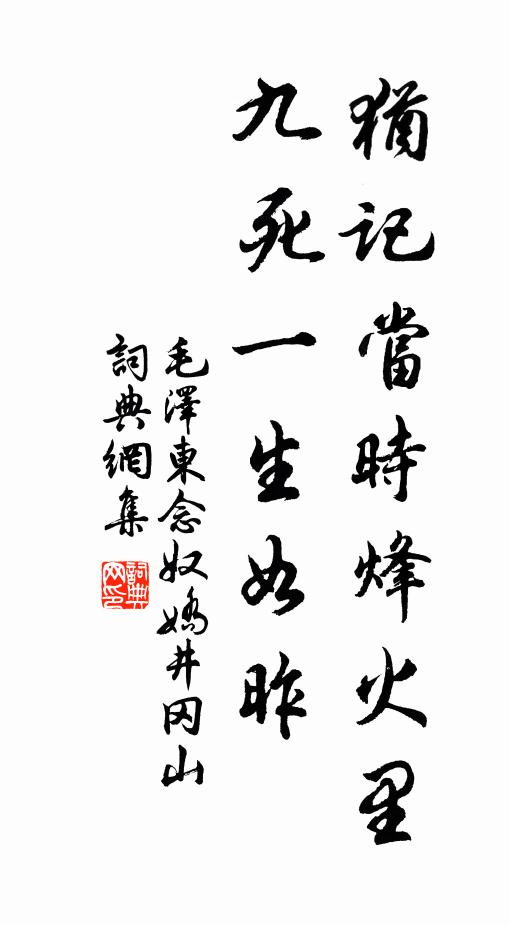 猶記當時烽火里
九死一生如昨
毛澤東念奴嬌井冈山
詞典網集
詞典网印